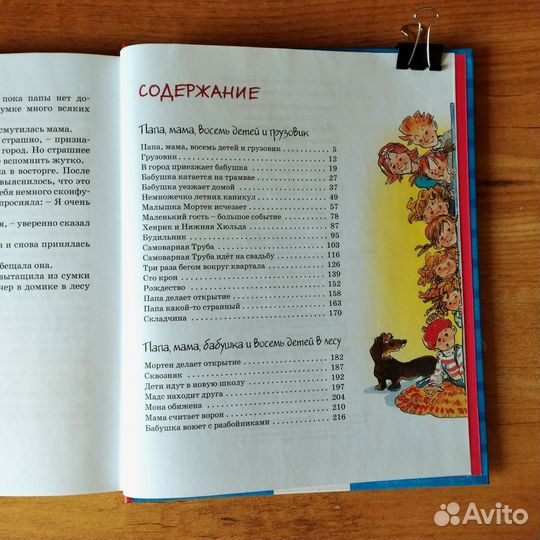 пока папы нет до-
умке много всяких
смутилась мама.
страшно, – призна-
город. Но страшнее
е вспомнить жутко.
а в восторге. После
выяснилось, что это
ебя немного сконфу-
просияла: – Я очень
я, – уверенно сказал
а и снова принялась
бещала она.
вытащила из сумки
чер в домике в лесу
СОДЕРЖАНИЕ
Папа, мама, восемь детей и грузовик
Папа, мама, восемь детей и грузовик 5
Грузовик 12
В город приезжает бабушка 19
Бабушка катается на трамвае 27
Бабушка уезжает домой 37
Немножечко летних каникул 49
Малышка Мортен исчезает 57
Маленький гость – большое событие 78
Хенрик и Нижняя Хюльда 87
Будильник 95
Самоварная Труба 103
Самоварная Труба идёт на свадьбу 116
Три раза бегом вокруг квартала 126
Сто крон 139
Рождество 152
Папа делает открытие 158
Папа какой-то странный 163
Складчина 170
Папа, мама, бабушка и восемь детей в лесу
Мортен делает открытие 182
Сквозняк 187
Дети идут в новую школу 192
Мадс находит друга 197
Мона обижена 204
Мама считает ворон 210
Бабушка воюет с разбойниками 216
Avito